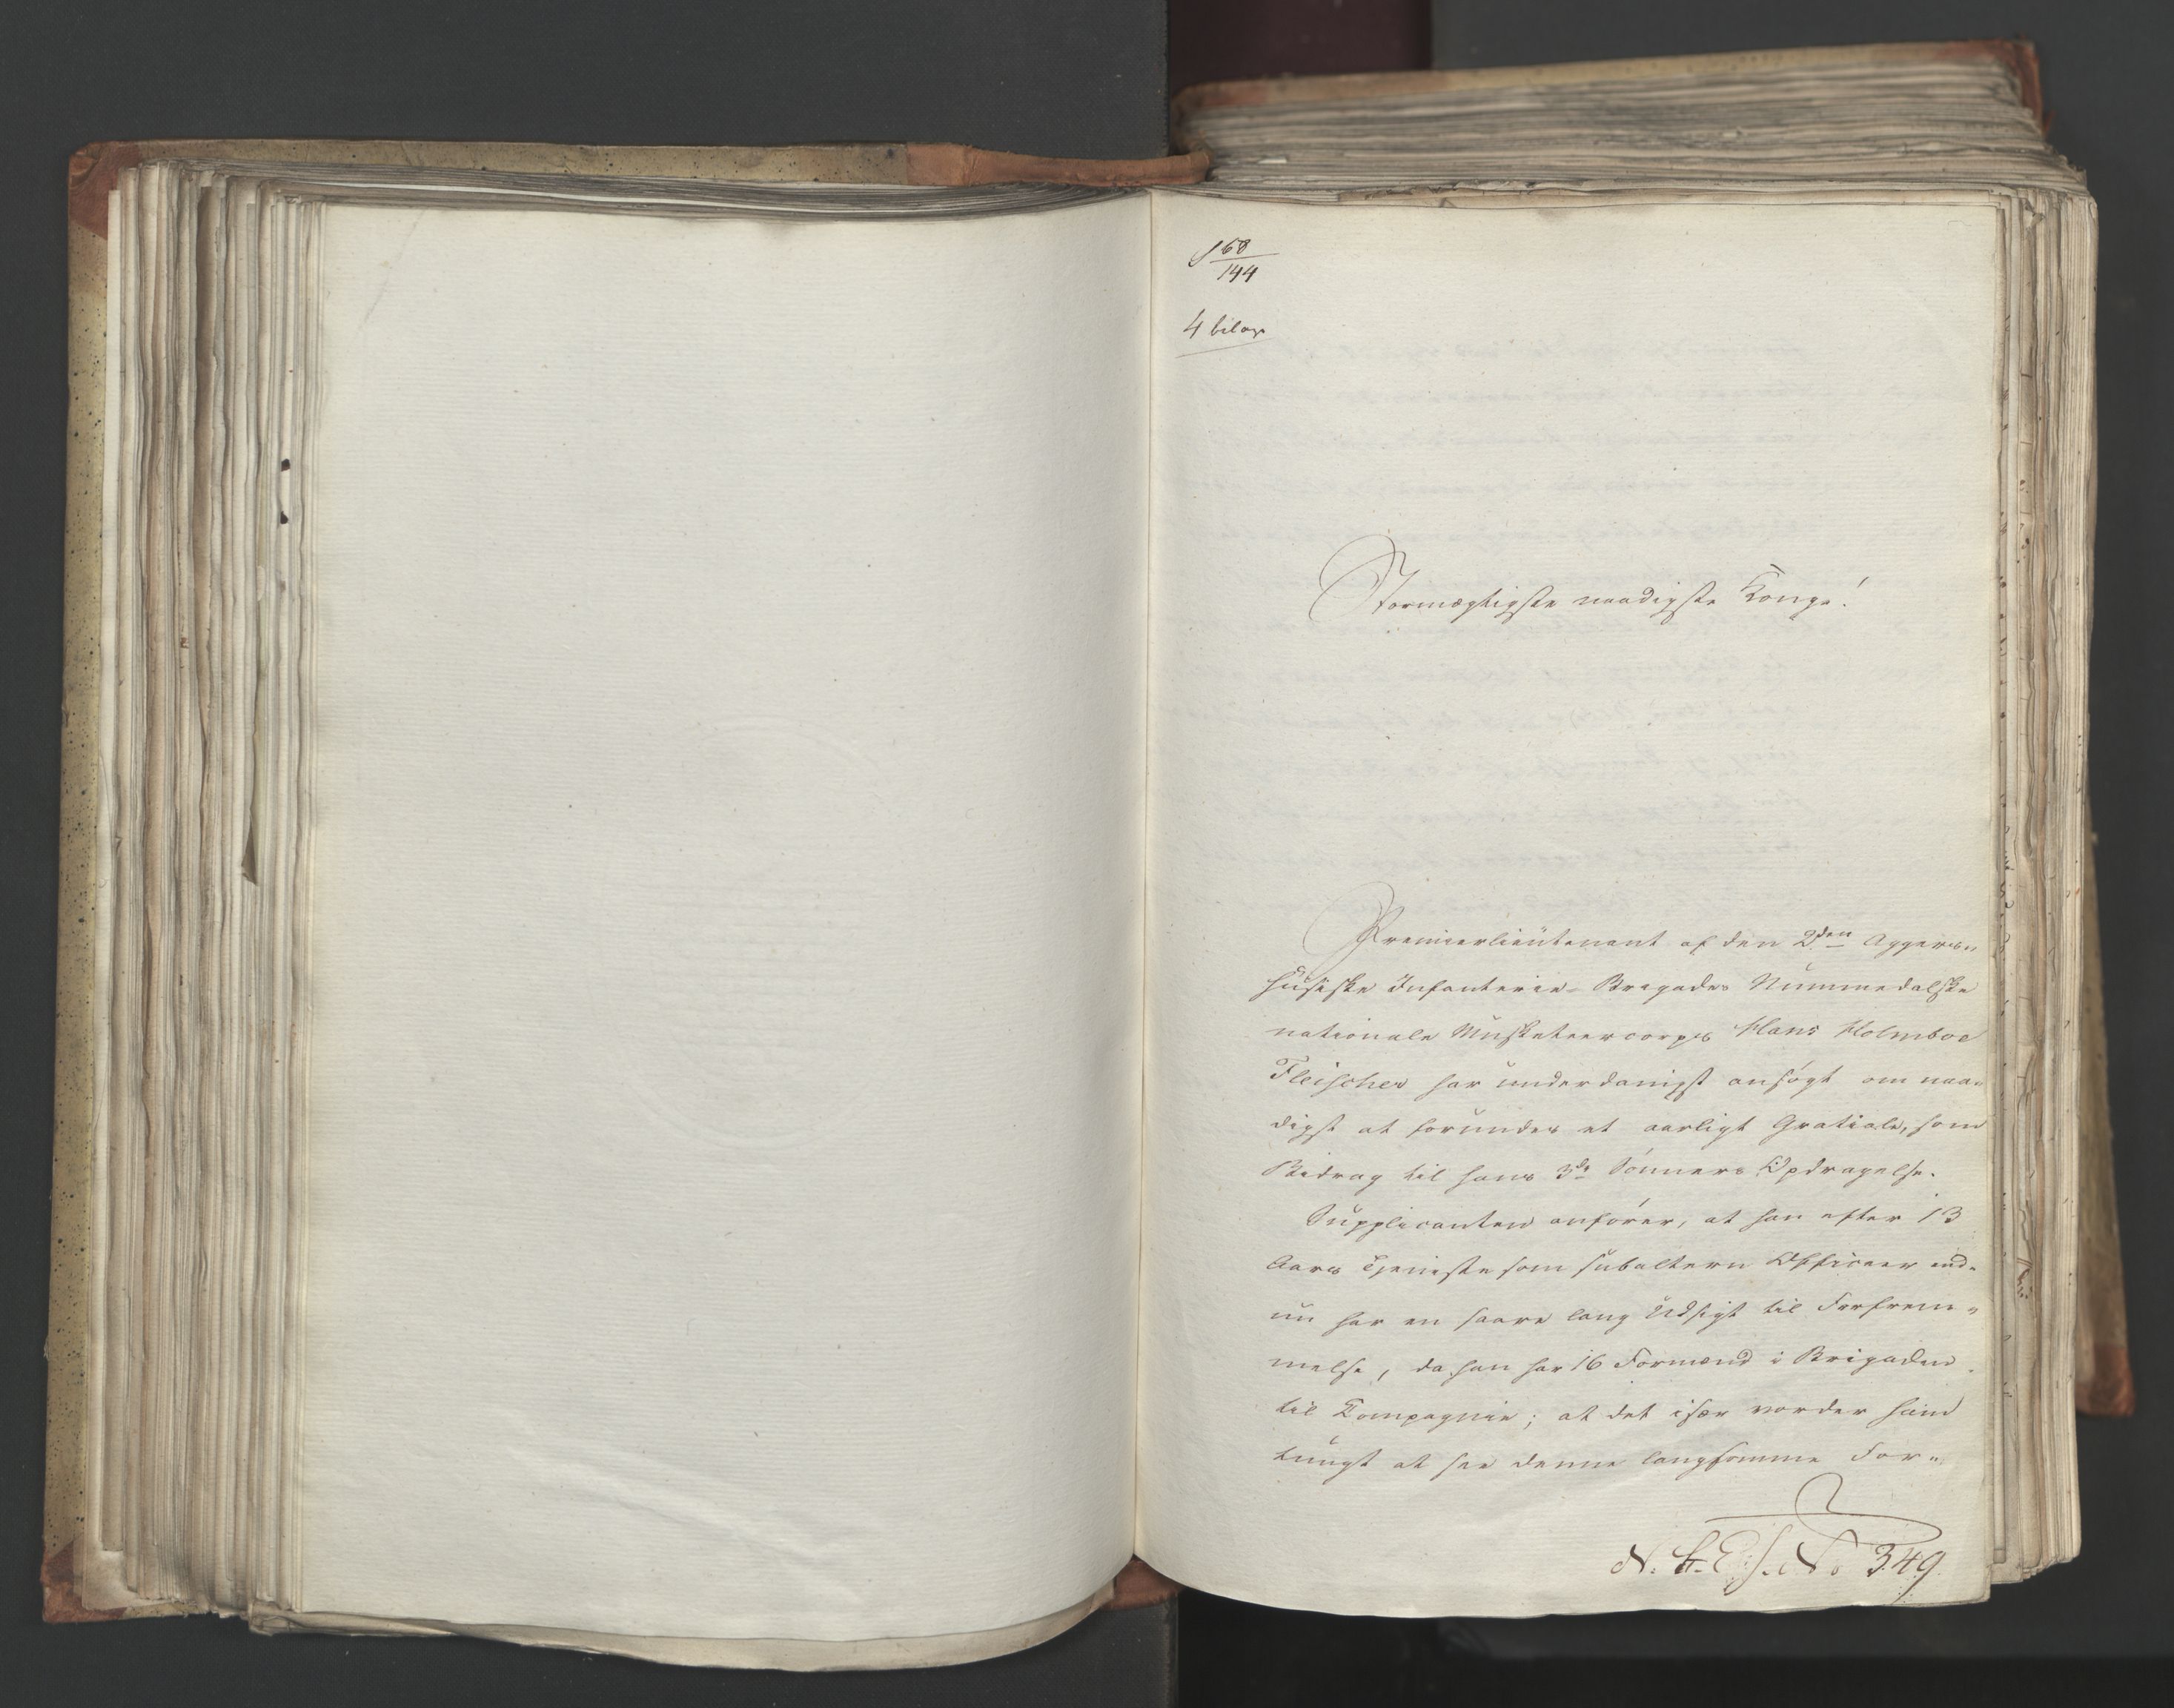 S 68
144
4 bilag
Stormægtigste naadigste Konge!
Premierlieutenant af den 2den Aggers„
huusiske Infanterie-Brigades Nummedalske
nationale Musketeercorps Hans Holmboe
Fleischer har underdanigst ansøgt om naa„
digst at forundes et aarligt Gratiale, som
Bidrag til hans 3de Sönners Opdragelse.
Supplicanten anförer, at han efter 13
Aars Tjeneste som subaltern Officeer end„
nu har en saare lang Udsigt til Forfrem„
melse, da han har 16 Formænd i Brigaden
til Compagnie; at det især vorder ham
tungt at see denne langsomme For„
No 349